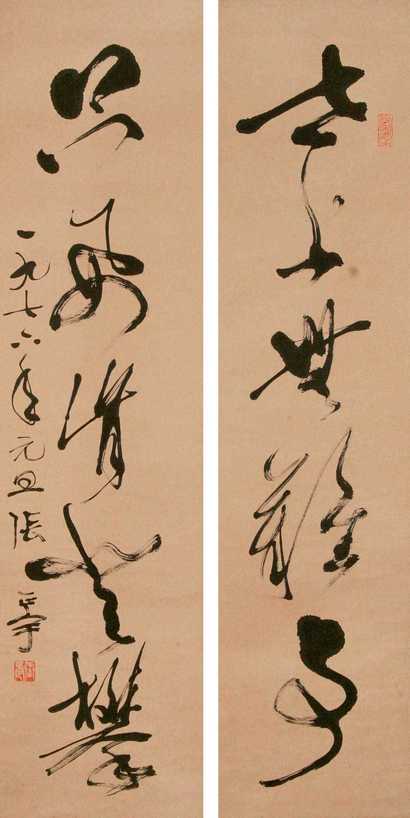 世上無難事
只要肯登攀
一九七六年元旦張正宇